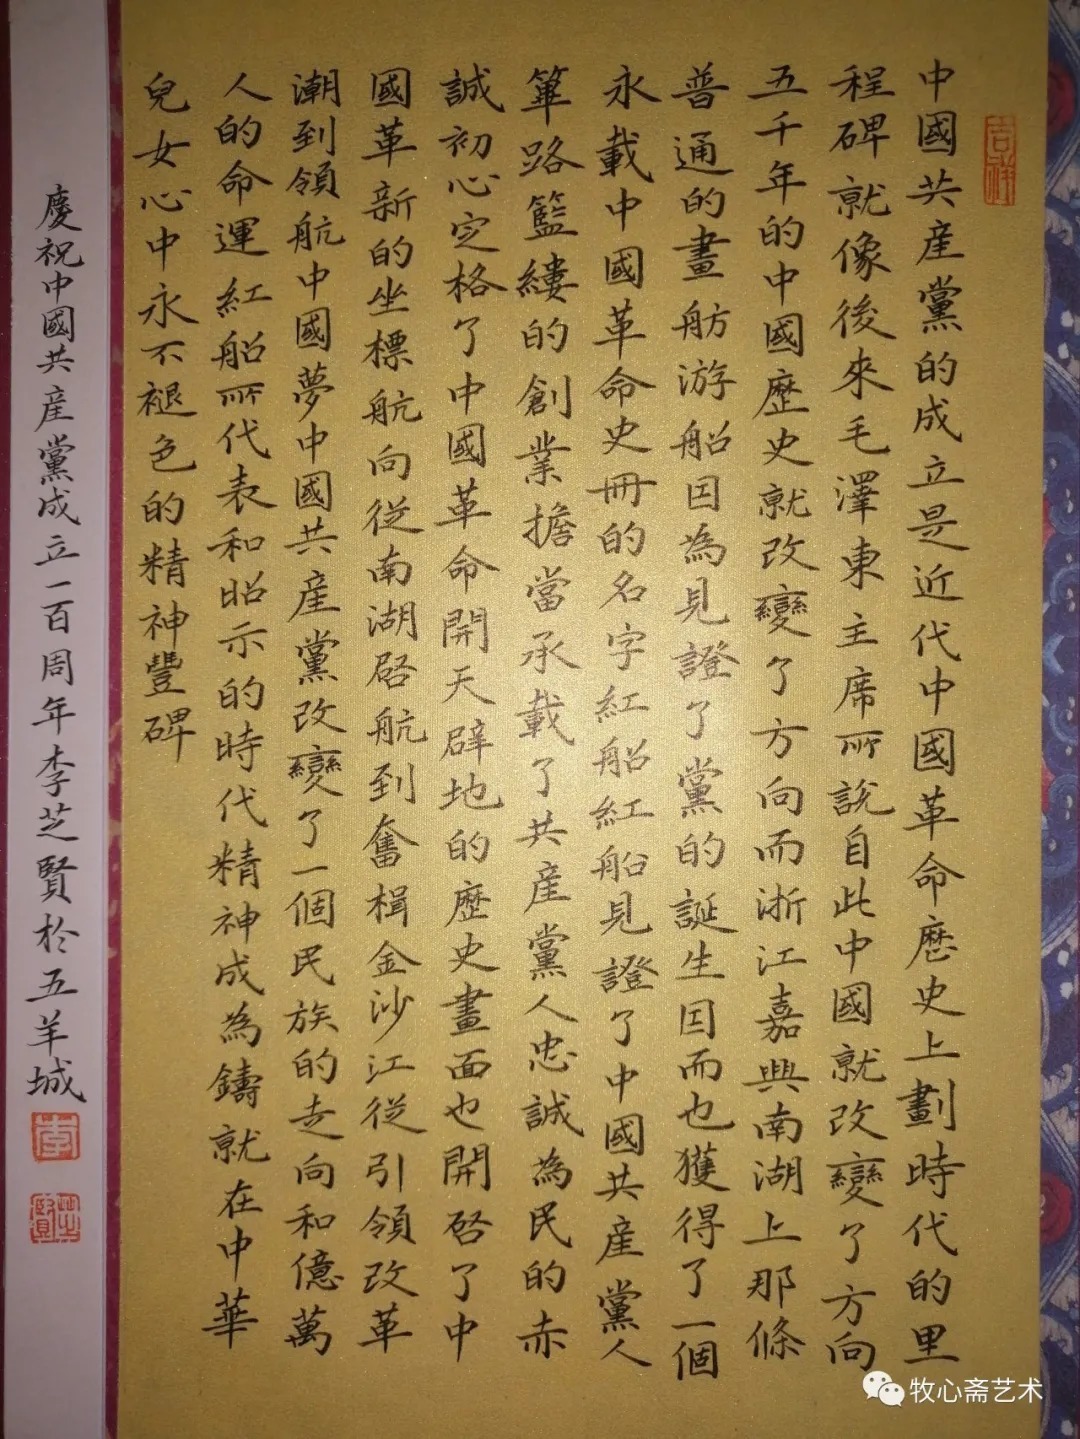 吉祥
中國共産黨的成立是近代中國革命歷史上劃時代的里
程碑就像後來毛澤東主席所說自此中國就改變了方向
五千年的中國歷史就改變了方向而浙江嘉興南湖上那條
普通的畫舫游船因為見證了黨的誕生因而也獲得了一個
永載中國革命史冊的名字紅船紅船見證了中國共産黨人
篳路籃縷的創業擔當承載了共産黨人忠誠為民的赤
誠初心定格了中國革命開天辟地的歷史畫面也開啓了中
國革新的坐標航向從南湖啓航到奮楫金沙江從引領改革
潮到領航中國夢中國共産黨改變了一個民族的走向和億萬
人的命運紅船所代表和昭示的時代精神成為鑄就在中華
兒女心中永不褪色的精神豐碑
慶祝中國共産黨成立一百周年李芝賢於五羊城
李
芝賢
牧心斋艺术